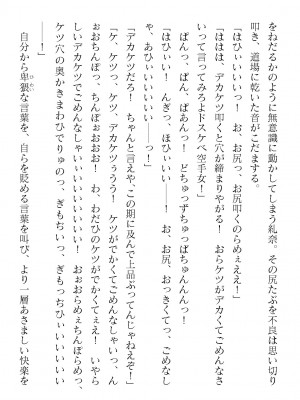 をねだるかのように無意識に動かしてしまう糺奈。その尻たぶを不良は思い切り
叩き、道場に乾いた音がこだまする。
「はひぃいいっ！　お、お尻っ、お尻叩くのらめぇえ！」
「ははは、デカケツ叩くと穴が締まりやがる！　おらケツがデカくてごめんなさ
いって言ってみろよドスケベ空手女！」
　ぱんっ、ぱん、ぱあんっ！　どちゅっずちゅっぱちゅんんんっ！
「はひぃい！　んぎっ、ほひぃいい！　お、お尻、おっきくてっ、ごめんなし
ゃ、あひぃいいいい――っ！」
「デカケツだろ！　ちゃんと言えや、この期に及んで上品ぶってんじゃねえぞ！」
「ケ、ケツっ、ケツ、デカケツぅうう！　ケツがでかくてごめんなしゃいっ、ん
おおちんぽっ、ちんぽぉおおお！　わ、わだひのケツがでかくてぇえ！　いやら
しいデカケツでごめんなしゃいいいい！　おぉおらめぇちんぽらめっ、
ケツ穴の奥かきまわひでりゅのっ、ぎもぢいっ、ぎもっちひぃいいいいい
――！」
　自分から卑猥な言葉を、自らを貶める言葉を叫び、より一層あさましい快楽を